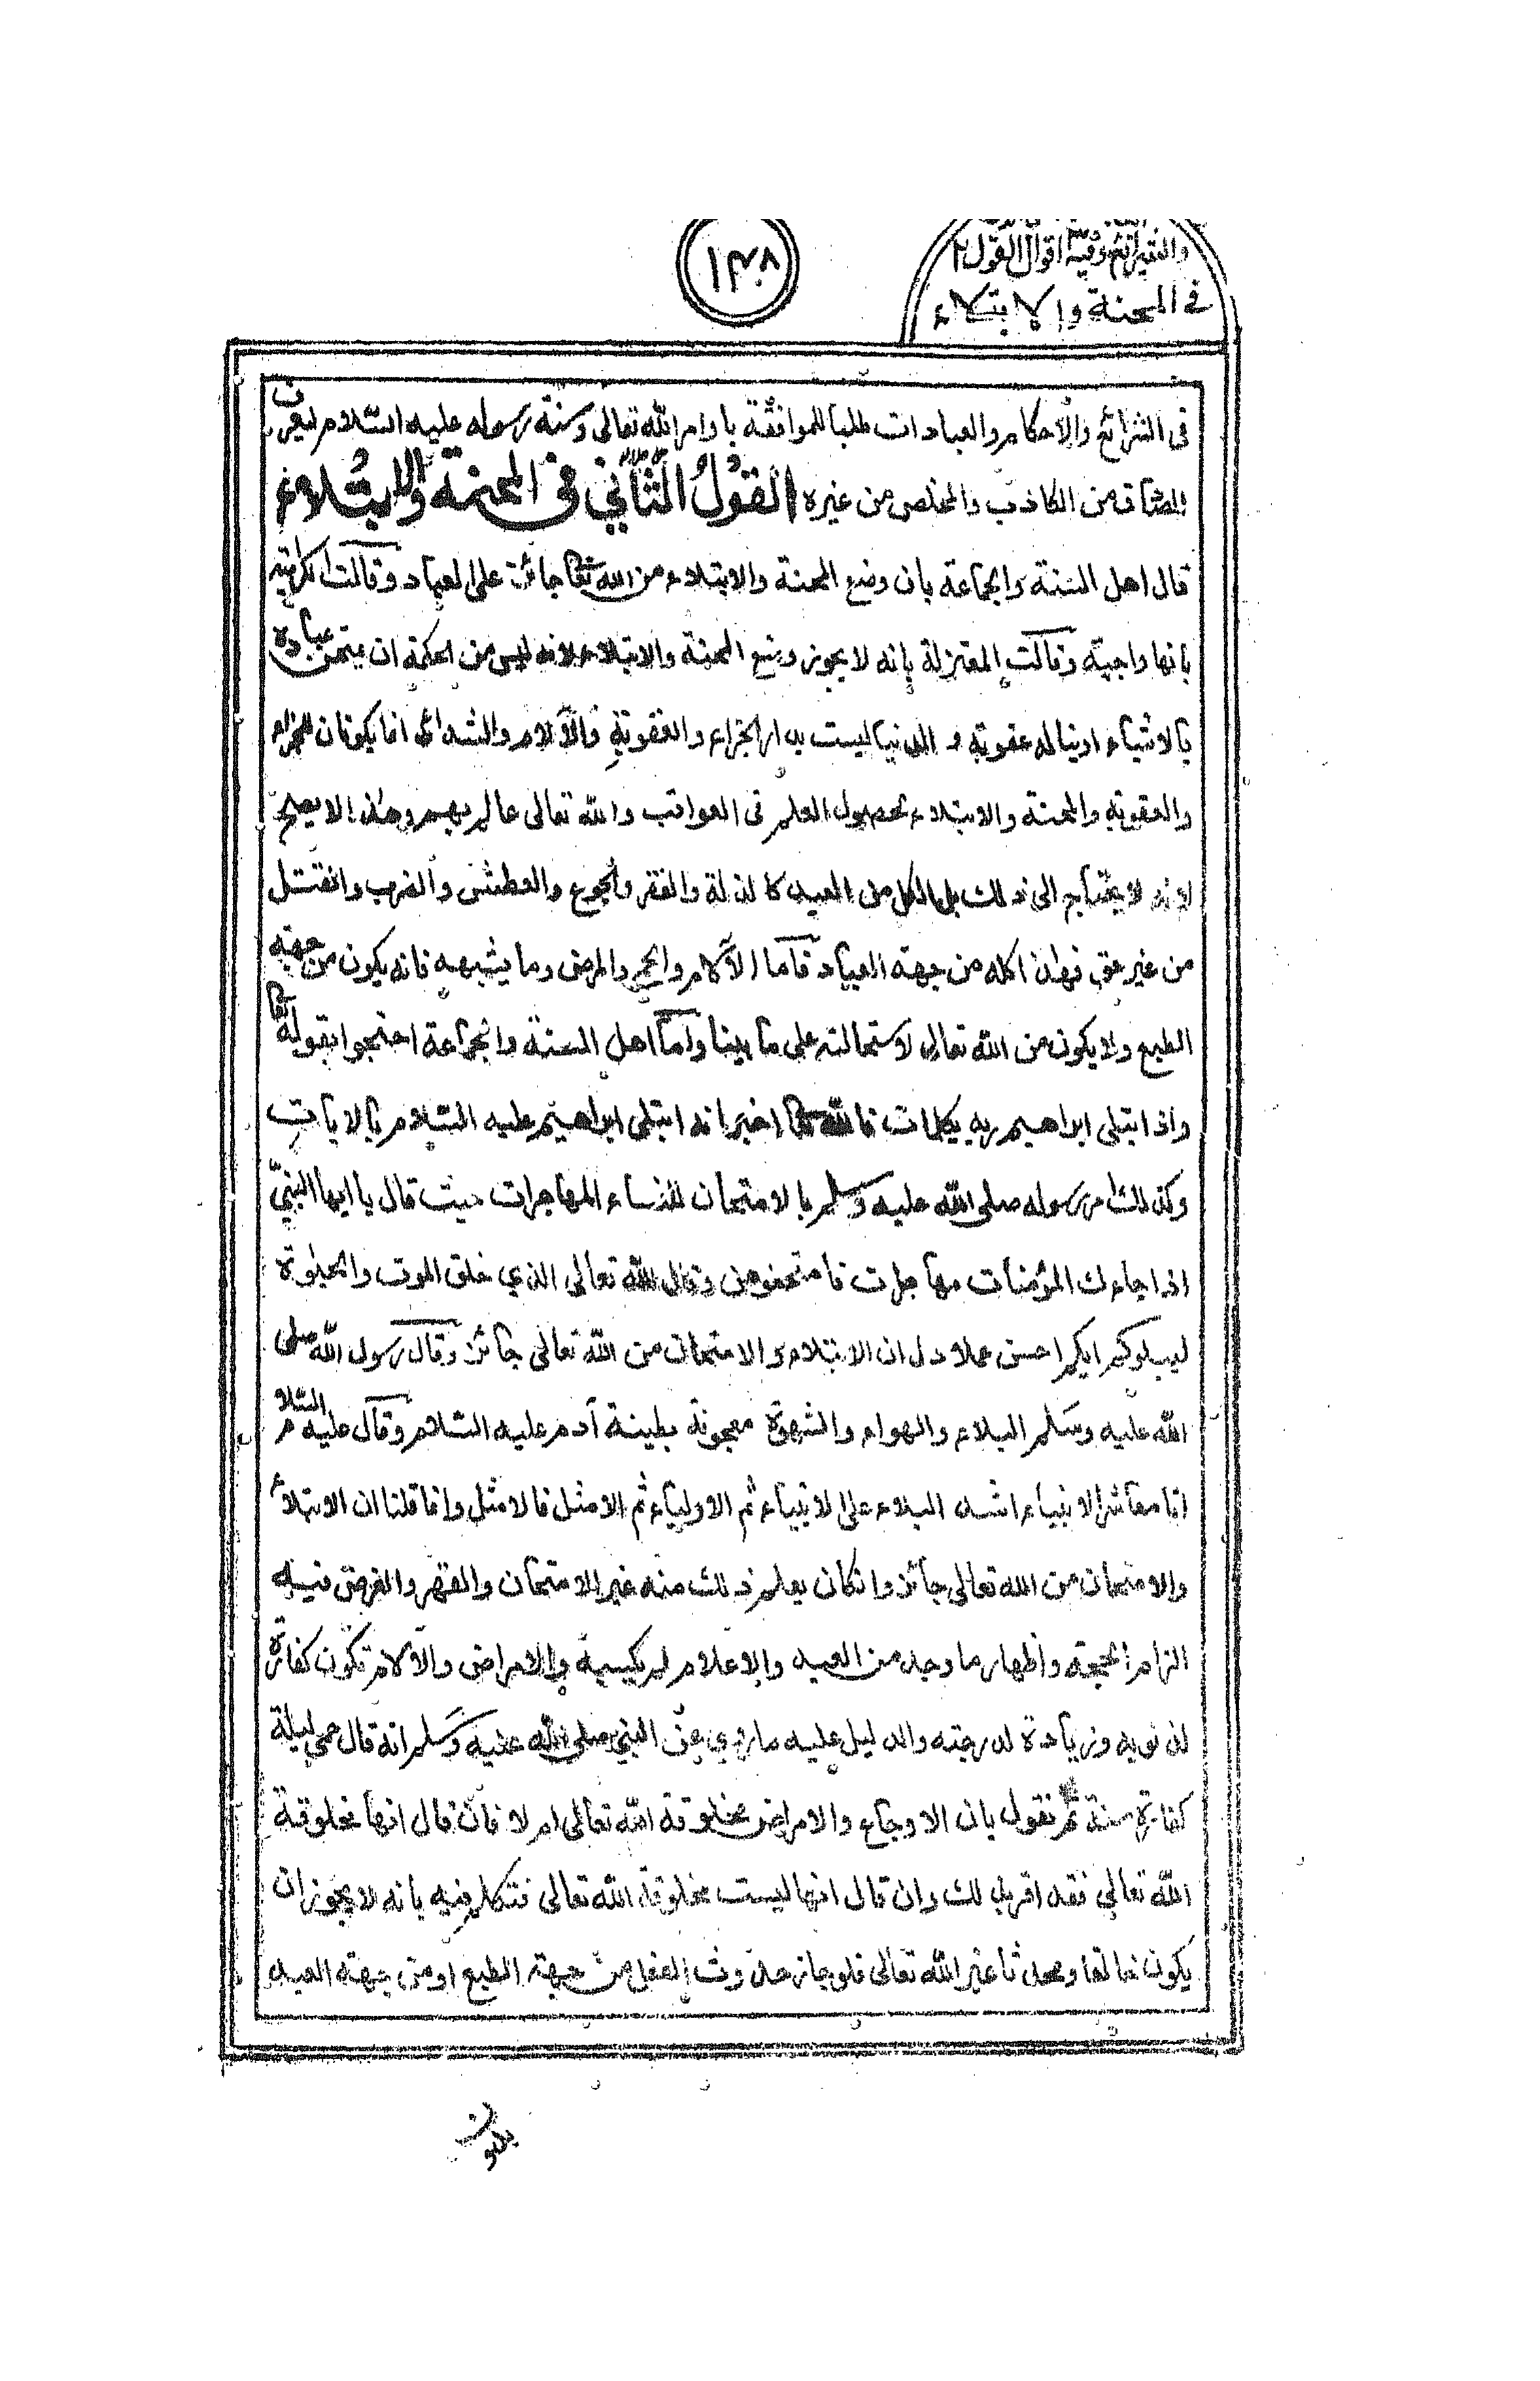 ١٣٠٨
والتغير اتبع وفيه اقوال القول ٢
في المحنة والابتلاء
فى الشرائع والأحكام والعبادات طلبا للموافقة باوامر الله تعالى وسنة رسوله عليه السّلام ليعرف
الصّادق من الكاذب والمخلص من غيره القَوْلُ الثَّانِي فى المحنة والابتلاء
قال اهل السّنة والجماعة بان وضع المحنة والابتلاء من الله تعا جائز على العباد وقالت الكرامية
بانها واجبة وقالت المعتزلة بانه لا يجوز وضع المحنة والابتلاء لانه ليس من الحكمة ان يمتحن عباده
بالاشياء او يناله عقوبة و الدنيا ليست بدار الجزاء والعقوبة والآلام والشدائد انما يكونان للجزاء
والعقوبة والمحنة والابتلاء لحصول العلم فى العواقب والله تعالى عالم بهم وهذا لا يصلح
لانه لا يحتاج الى ذلك بل الكل من العبد كالذلة والفقر والجوع والعطش والضرب والقتل
من غير حق فهذا كله من جهة العباد فاما الآلام والحر والمرض وما يشبهه فانه يكون من جهة
الطبع ولا يكون من الله تعالى لاستحالته على ما بينا وامّا اهل السنة والجماعة احتجوا بقوله تعا
واذ ابتلى ابراهيم ربه بكلمات فالله تعا اخبر انه ابتلى ابراهيم عليه السّلام بالايات
وكذلك امر رسوله صلى الله عليه وسلم بالامتحان للنساء المهاجرات حيث قال يا ايها النبيّ
اذا جاءك المؤمنات مهاجرات فامتحنوهن وقال الله تعالى الذي خلق الموت والحيٰوة
ليبلوكم ايكم احسن عملا دل ان الابتلاء والامتحان من الله تعالى جائز وقال رسول الله صلى
الله عليه وسَلم البلاء والهواء والشهوة معجونة بطينة آدم عليه السّلام وقال عليه السّلام
انا معاشر الانبياء اشد البلاء على الانبياء ثم الاولياء ثم الامثل فالامثل وانما قلنا ان الابتلاء
والامتحان من الله تعالى جائز وانكان يعلم ذلك منه غير الامتحان والقهر والغرض فيه
التزام الحجة واظهار ما وجد من العبد والاعلام والامراض والآلام تكون كفارة
لذنوبه وزيادة لدرجته والدليل عليه ما روي عن النبي صلى الله عليه وسَلم انه قال حمى ليلة
كفارة سنة ثم نقول بان الاوجاع والامراض مخلوقة الله تعالى ام لا فان قال انها مخلوقة
الله تعالى فقد اقر بذلك وان قال انها ليست مخلوقة الله تعالى فنتكلم فيه بانه لا يجوز ان
يكون خالقا ومحدثا غير الله تعالى فلو جاز حدوث الفعل من جهة الطبع او من جهة العبد